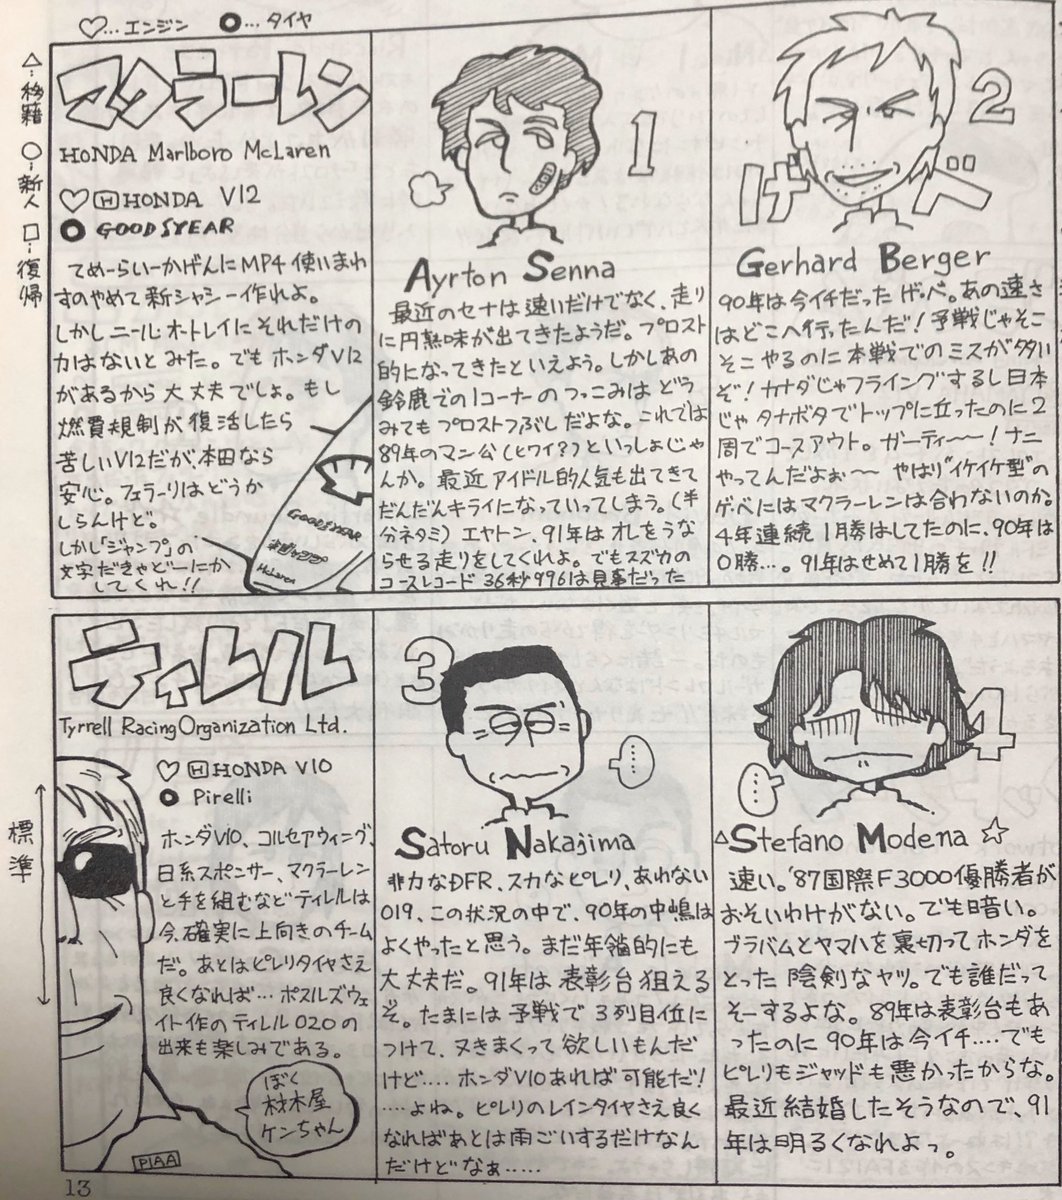 ♡…エンジン ●…タイヤ
△…移籍 ○…新人 □…復帰
マクラーレン
HONDA Marlboro McLaren
♡ H HONDA V12
● GOODYEAR
てめーらいーかげんにMP4使いまわ
すのやめて新シャシー作れよ。
しかしニール・オートレイにそれだけの
力はないとみた。でもホンダV12
があるから大丈夫でしょ。もし
燃費規制が復活したら
苦しいV12だが、本田なら
安心。フェラーリはどうか
しらんけど。
しかし「ジャンプ」の
文字だきゃどーにか
してくれ!!
GOODYEAR
少年ジャンプ
McLaren
1
Ayrton Senna
最近のセナは速いだけでなく、走り
に円熟味が出てきたようだ。プロスト
的になってきたといえよう。しかしあの
鈴鹿での1コーナーのつっこみはどう
みてもプロストつぶしだよな。これでは
89年のマン公(ヒワイ?)といっしょじゃ
んか。最近アイドル的人気も出てきて
だんだんキライになっていってしまう。(半
分ネタミ)エヤトン、91年はオレをうな
らせる走りをしてくれよ。でもスズカの
コースレコード36秒996は見事だった
2
げべ
Gerhard Berger
90年は今イチだったゲ・ベ。あの速さ
はどこへ行ったんだ!予戦じゃそこ
そこやるのに本戦でのミスが多い
ぞ!カナダじゃフライングするし日本
じゃタナボタでトップに立ったのに2
周でコースアウト。ガーティ〜〜!ナニ
やってんだよぉ〜〜 やはり"イケイケ型"の
ゲ・ベにはマクラーレンは合わないのか。
4年連続1勝はしてたのに、90年は
0勝…。91年はせめて1勝を!!
ティレル
Tyrrell Racing Organization Ltd.
♡ H HONDA V10
● Pirelli
標準
ホンダV10、コルセアウィング、
日系スポンサー、マクラーレン
と手を組むなどティレルは
今、確実に上向きのチーム
だ。あとはピレリタイヤさえ
良くなれば…ポスルズウェ
イト作のティレル020の
出来も楽しみである。
ぼく
材木屋
ケンちゃん
PIAA
3
……
Satoru Nakajima
非力なDFR、スカなピレリ、あれない
019、この状況の中で、90年の中嶋は
よくやったと思う。まだ年齢的にも
大丈夫だ。91年は表彰台狙える
ぞ。たまには予戦で3列目位に
つけて、ヌきまくって欲しいもんだ
けど…. ホンダV10あれば可能だ!
….よね。ピレリのレインタイヤさえ良く
なればあとは雨ごいするだけなん
だけどなぁ……
4
……
△Stefano Modena ☆
速い。'87国際F3000優勝者が
おそいわけがない。でも暗い。
ブラバムとヤマハを裏切ってホンダを
とった陰険なヤツ。でも誰だって
そーするよな。89年は表彰台もあ
ったのに90年は今イチ….でも
ピレリもジャッドも悪かったからな。
最近結婚したそうなので、91
年は明るくなれよっ。
13